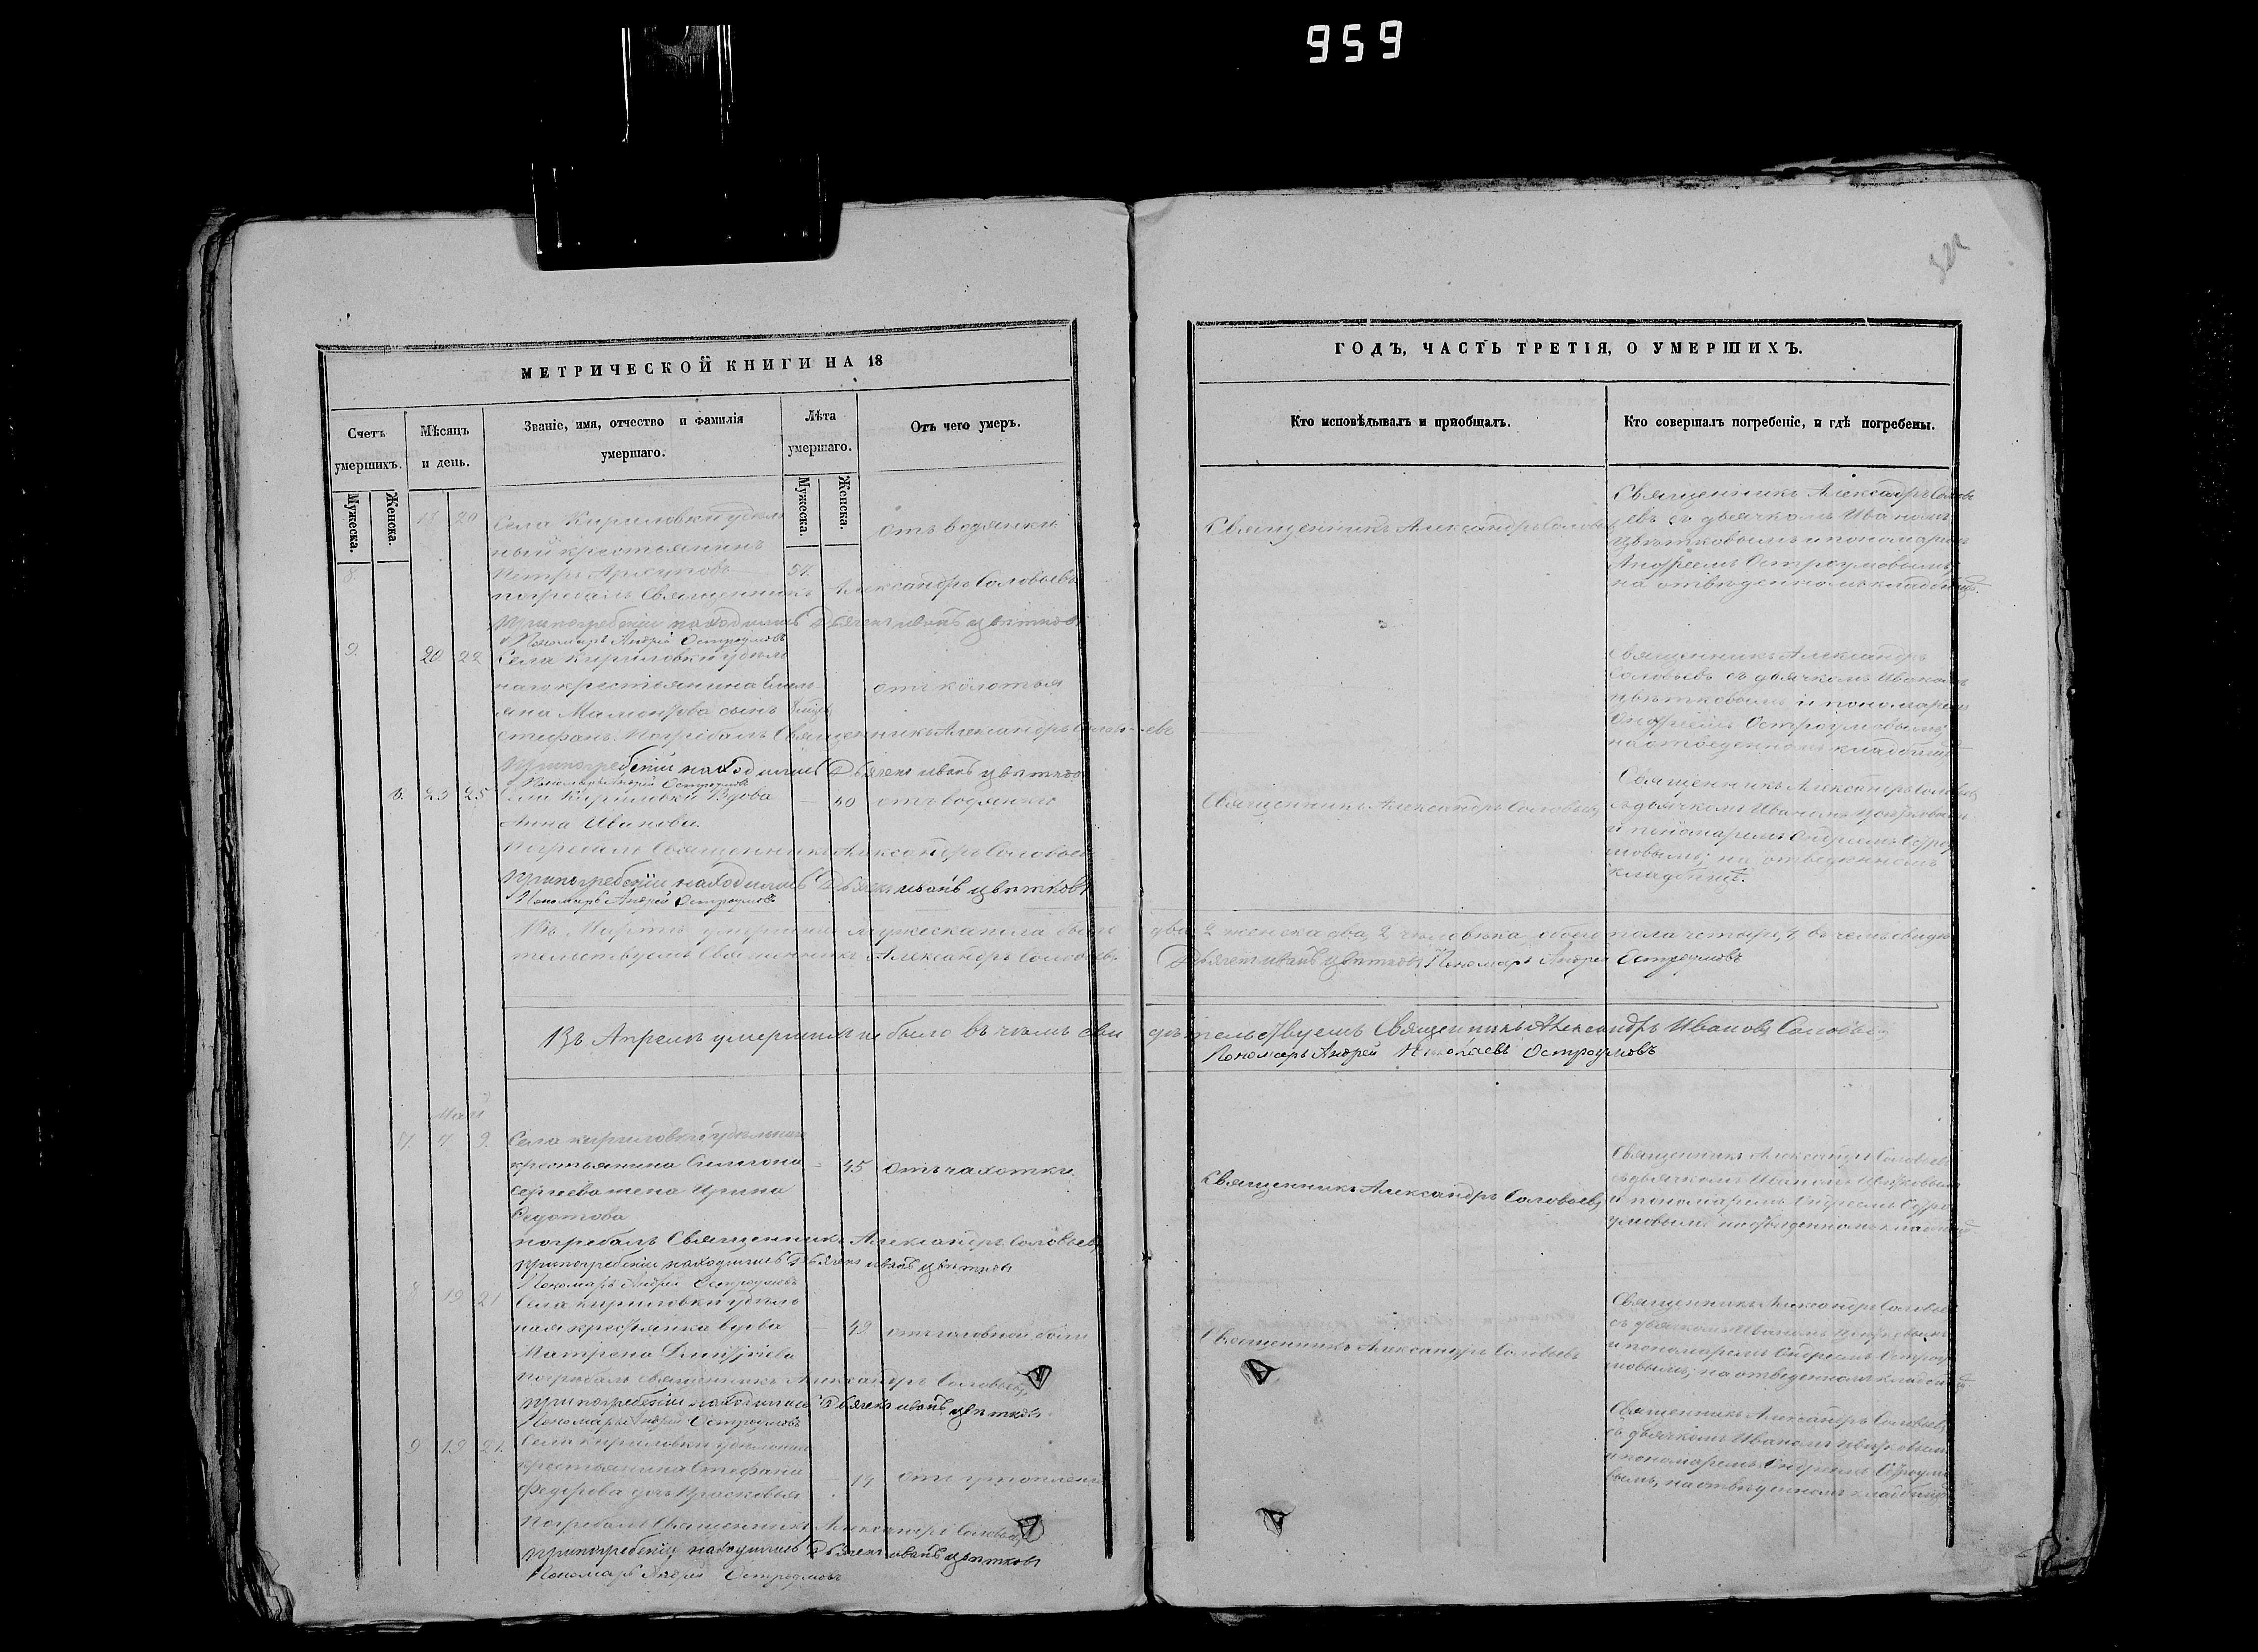 959
МЕТРИЧЕСКОЙ КНИГИ НА 18
Счетъ умершихъ.
Мѣсяцъ и день.
Званіе, имя, отчество и фамилія умершаго.
Лѣта умершаго.
Отъ чего умеръ.
Мужеска.
Женска.
Мужеска.
Женска.
18 20 Села Кириловки удѣль
отъ водянки
ный крестьянинъ
8.
Петръ
погребалъ Священникъ Александръ Соловьевъ
при погребеніи находились Дьячекъ Иванъ Цвѣтковъ
Пономарь Андрей Остроумовъ
9. 20 22 Села Кириловки удѣль
наго крестьянина Емель
отъ колотья
яна сынъ
Стефанъ. Погребалъ Священникъ Александръ Соловьевъ
при погребеніи находились Дьячекъ Иванъ Цвѣтковъ
Пономарь Андрей Остроумовъ
23 25 Кириловки Вдова
отъ водянки
Анна Иванова.
погребалъ Священникъ Александръ Соловьевъ
при погребеніи находились Дьячекъ Иванъ Цвѣтковъ
Пономарь Андрей Остроумовъ
Въ Мартѣ умершихъ мужеска пола было
тельствуемъ Священникъ Александръ Соловьевъ
Въ Апрелѣ умершихъ не было въ чемъ сви
Май
7. 7 9. Села Кириловки удѣльнаго
крестьянина Симеона
45 отъ чахотки
Сергѣева жена Ирина
Федотова
погребалъ Священникъ Александръ Соловьевъ
при погребеніи находились Дьячекъ Иванъ Цвѣтковъ
Пономарь Андрей Остроумовъ
8 19 21 Села Кириловки удѣль
ная крестьянка вдова
42 отъ головной боли
Матрона Димитріева
погребалъ священникъ Александръ Соловьевъ
при погребеніи находились Дьячекъ Иванъ Цвѣтковъ
Пономарь Андрей Остроумовъ
9 19 21. Села Кириловки удѣльнаго
крестьянина Стефана
Федорова дочь Прасковья
погребалъ Священникъ Александръ Соловьевъ
при погребеніи находились Дьячекъ Иванъ Цвѣтковъ
Пономарь Андрей Остроумовъ
ГОДЪ, ЧАСТЬ ТРЕТІЯ, О УМЕРШИХЪ.
Кто исповѣдывалъ и приобщалъ.
Кто совершалъ погребеніе, и гдѣ погребены.
Священникъ Александръ Соловьевъ
Священникъ Александръ Соловь
евъ съ дьячкомъ Иваномъ
Цвѣтковымъ и пономаремъ
Андреемъ Остроумовымъ,
на отведенномъ кладбищѣ.
Священникъ Александръ
Соловьевъ съ дьячкомъ Иваномъ
Цвѣтковымъ и пономаремъ
Андреемъ Остроумовымъ,
на отведенномъ кладбищѣ
Священникъ Александръ Соловьевъ
Священникъ Александръ Соловьевъ
съ дьячкомъ Иваномъ Цвѣтковымъ
и пономаремъ Андреемъ Остро
умовымъ, на отведенномъ
кладбищѣ.
два 2 женска два, 2 человѣка обоего пола четыре, 4 въ чемъ свидѣ
Дьячекъ Иванъ Цвѣтковъ Пономарь Андрей Остроумовъ
дѣтельствуемъ Священникъ Александръ Ивановъ Соловьевъ
Пономарь Андрей Николаевъ Остроумовъ
Священникъ Александръ Соловьевъ
Священникъ Александръ Соловьевъ
съ дьячкомъ Иваномъ Цвѣтковымъ
и пономаремъ Андреемъ Остро
умовымъ на отведенномъ кладбищѣ
Священникъ Александръ Соловьевъ
Священникъ Александръ Соловьевъ
съ дьячкомъ Иваномъ Цвѣтковымъ
и пономаремъ Андреемъ Остроу
мовымъ, на отведенномъ кладбищѣ
Священникъ Александръ Соловьевъ
съ дьячкомъ Иваномъ Цвѣтковымъ
и пономаремъ Андреемъ Остроумо
вымъ, на отведенномъ кладбищѣ